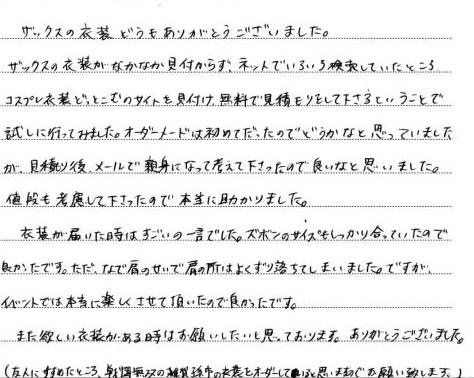 ザックスの衣装、どうもありがとうございました。
ザックスの衣装がなかなか見付からず、ネットでいろいろ検索していたところ
コスプレ衣装どっとこむのサイトを見付け、無料で見積もりをして下さるということで
試しに行ってみました。オーダーメードは初めてだったのでどうかなと思っていました
が、見積り後、メールで親身になって考えて下さったので良いなと思いました。
値段も考慮して下さったので本当に助かりました。
衣装が届いた時はすごいの一言でした。ズボンのサイズもしっかり合っていたので
良かったです。ただ、なで肩のせいで肩の所はよくずり落ちてしまいました。ですが、
イベントでは本当に楽しくさせて頂いたので良かったです。
また欲しい衣装がある時はお願いしたいと思っております。ありがとうございました。
(友人にすすめたところ、戦国無双の雑賀孫市の衣装をオーダーして